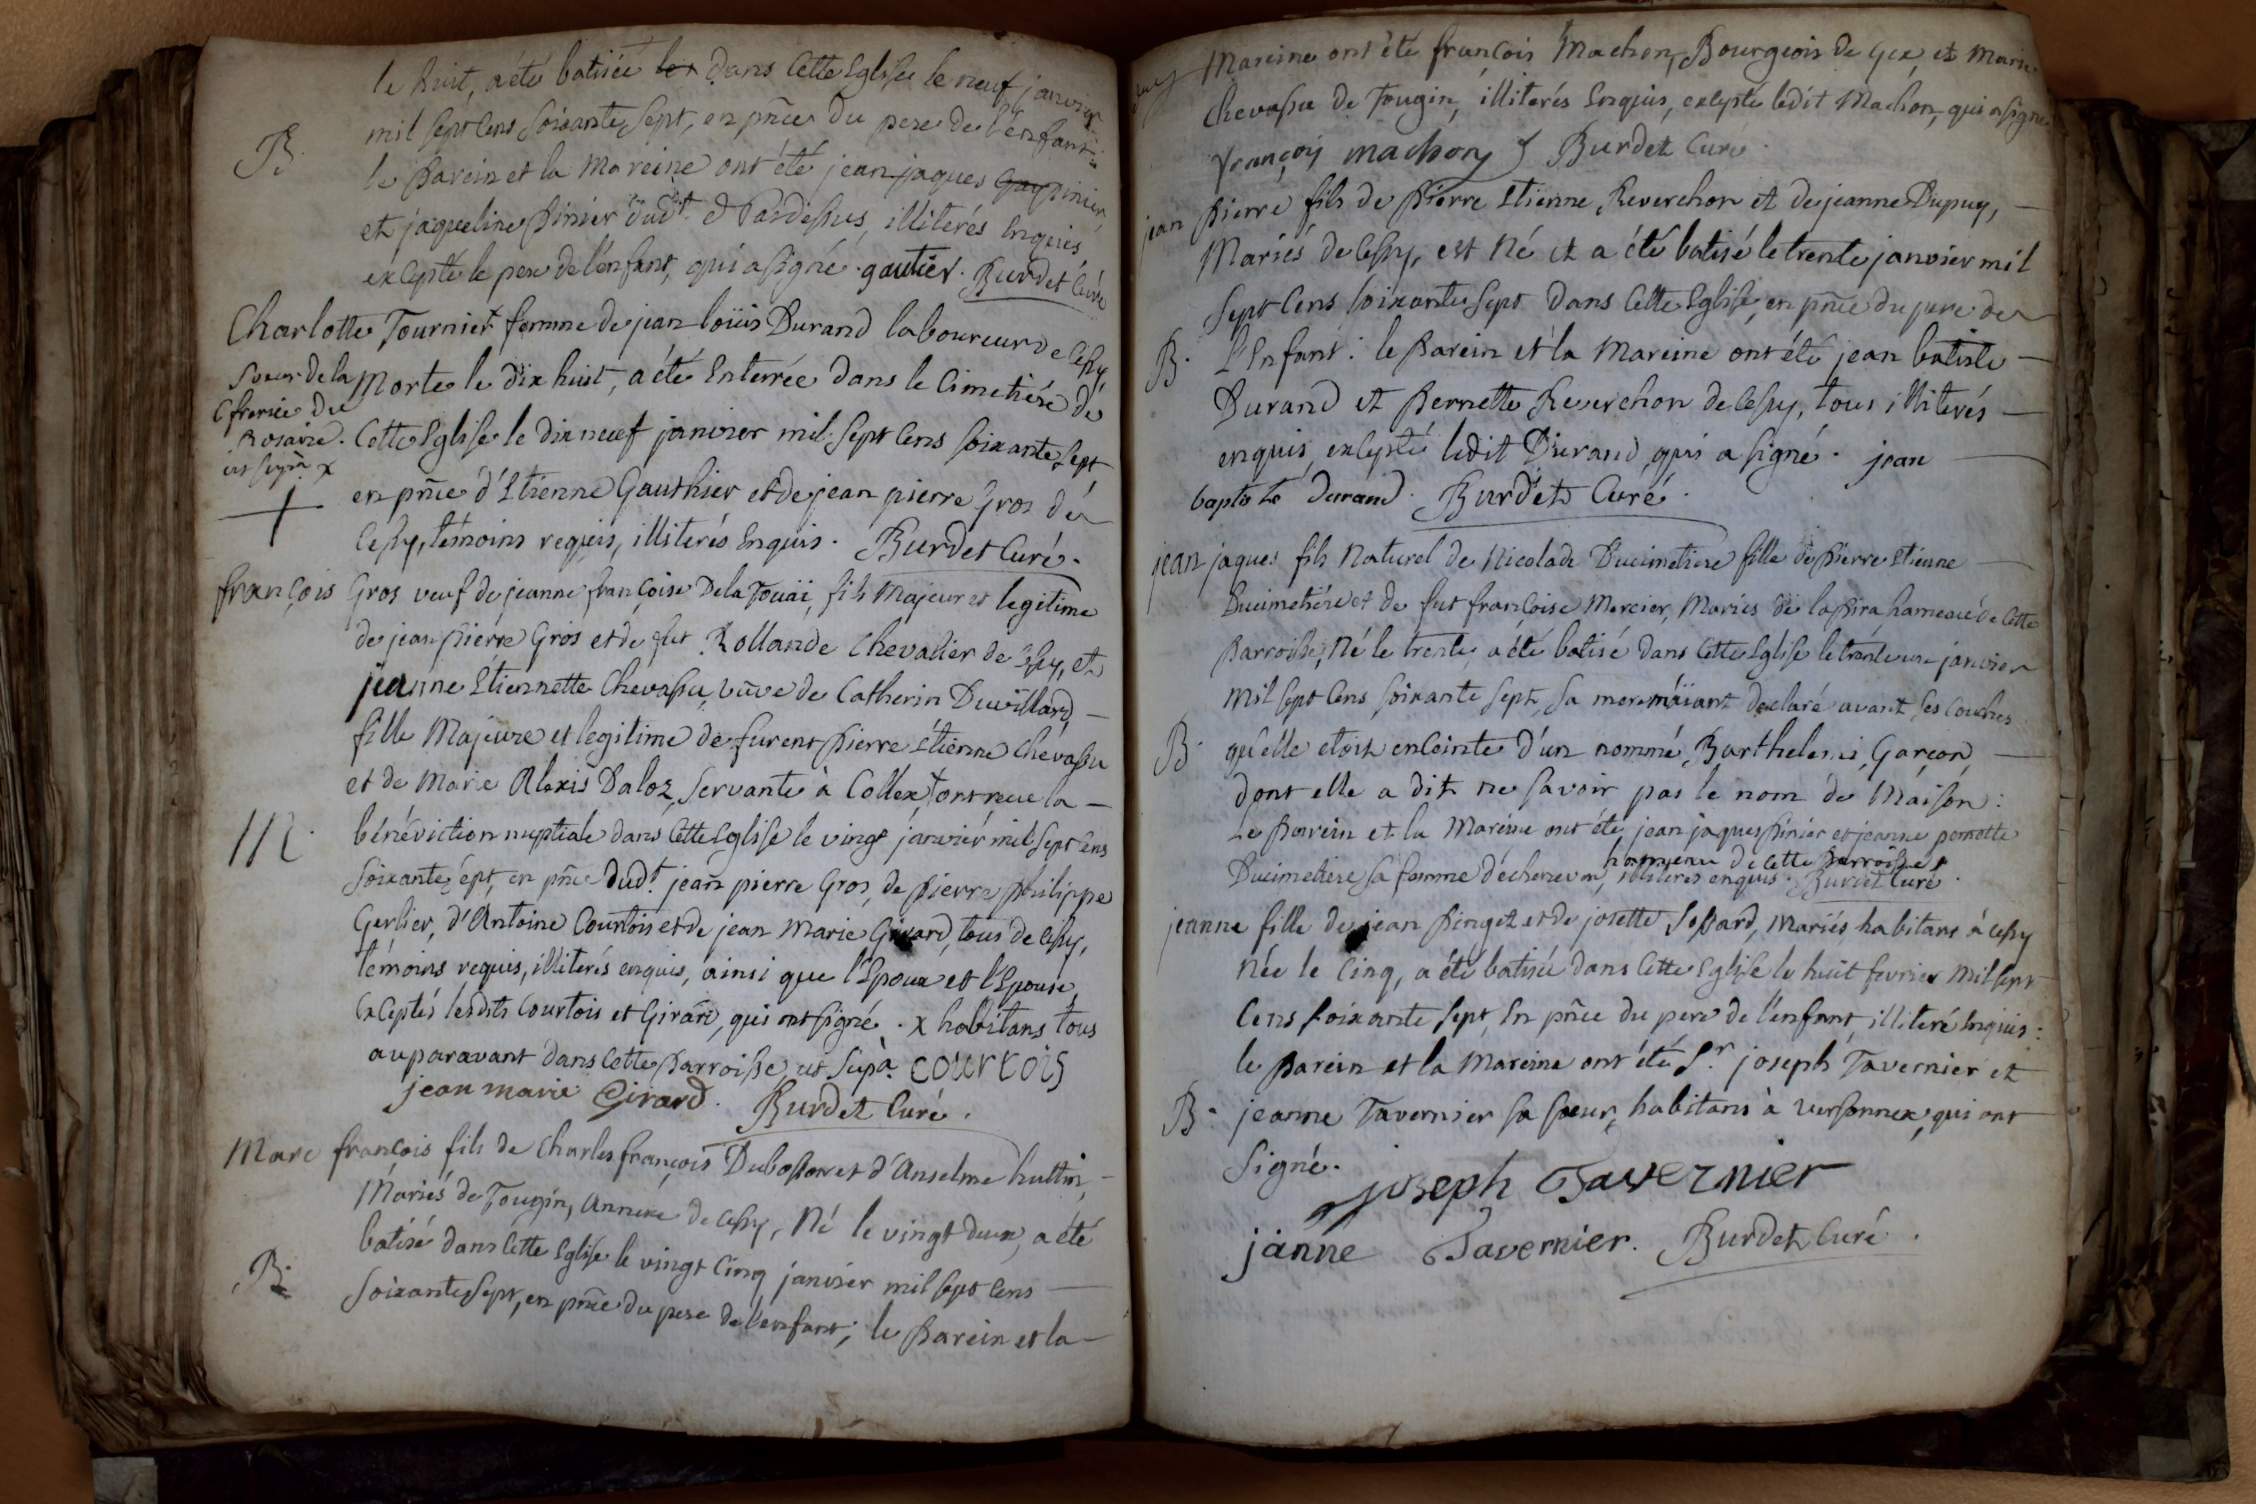 le huit, a été batisée les dans cette Eglise le neuf janvier
mil sept cens soixante sept, en pñce du pere de l'enfant
B.
le parein et la mareine ont été jean jaques Gay pinier
et jaqueline pinier dudt. pardessus, illiterés enquis
excepté le pere de l'enfant, qui a signé. gautier. Burdet Curé
Charlotte Tournier femme de jean loüis Durand laboureur de Cessy,
Soeur de la
Cfrerie du
Rosaire.
ut supra x
morte le dix huit, a été Enterrée dans le Cimetiére de
Cette Eglise le dix neuf janvier mil sept Cens soixante sept,
en pñce d'Etienne Gauthier et de jean pierre Gros de
Cessy, témoins requis, illiterés Enquis. Burdet Curé.
françois Gros veuf de jeanne françoise Dela Touäi, fils Majeur et legitime
de jean pierre Gros et de fut Rollande Chevalier de Cessy, et
jeanne Etiennette Chevassu, vüve de Catherin Duvillard,
fille Majeure et legitime de furent pierre Etienne Chevassu
et de Marie Alexis Daloz, Servante à Collex, ont reçue la
M.
bénédiction nuptiale dans Cette Eglise le vingt janvier mil sept cens
soixante sept, en pñce dudt. jean pierre Gros, de pierre philippe
Gerlier, d'Antoine Courtois et de jean Marie Girard, tous de Cessy,
témoins requis, illiterés enquis, ainsi que l'Epoux et l'Epouse,
Exceptés lesdits Courtois et Girard, qui ont signé. x habitans tous
auparavant dans Cette parroisse, ut supà. COURTOIS
jean marie Girard. Burdet Curé.
Marc françois fils de Charles françois Duboston et d'Anselme huttin,
Mariés de Tougin, Annexe de Cessy, Né le vingt deux, a été
batisé dans Cette Eglise le vingt cinq janvier mil sept cens
B.
soixante sept, en pñce du pere de l'enfant; le parein et la
Mareine ont été françois Machon, Bourgeois de Gex, et Marie
Chevassu de Tougin, illiterés Enquis, excepté ledit Machon, qui a signé.
françoy machon Burdet Curé.
jean pierre fils de pierre Etienne Reverchon et de jeanne Dupuy,
Mariés de Cessy, est Né et a été batisé le trente janvier mil
sept Cens soixante sept dans Cette Eglise, en pñce du pere de
B.
l'Enfant: le parein et la Mareine ont été jean batiste
Durand et pernette Reverchon de Cessy, tous illiterés
enquis, excepté ledit Durand, qui a signé. jean
baptiste durand. Burdet Curé.
jean jaques fils Naturel de Nicolade Ducimetiere fille de pierre Etienne
Ducimetiére et de fut françoise Mercier, Mariés de lapira hameau de Cette
Parroisse, Né le trente, a été batisé dans Cette Eglise le trente un janvier
mil sept Cens soixante sept, sa mere m'aïant declaré avant ses couches
B.
qu'elle etoit enceinte d'un nommé, Barthelemi, Garçon,
dont elle a dit ne savoir pas le nom de Maison:
Le Parein et la Mareine ont été jean jaques pinier et jeanne pernette
hammeau de cette parroisse
Ducimetiere sa femme d'echenevex, illiterés enquis. Burdet Curé.
jeanne fille de jean pinget et de josette Sossard, Mariés habitans à Cessy
Née le Cinq, a été batisée dans Cette Eglise le huit fevrier Mil sept
Cens soixante sept, En pñce du pere de l'enfant, illiteré Enquis:
le parein et la Mareine ont été Sr. joseph Tavernier et
B.
jeanne Tavernier sa soeur, habitans à Versonnex, qui ont
signé.
joseph Tavernier
janne Tavernier. Burdet Curé.